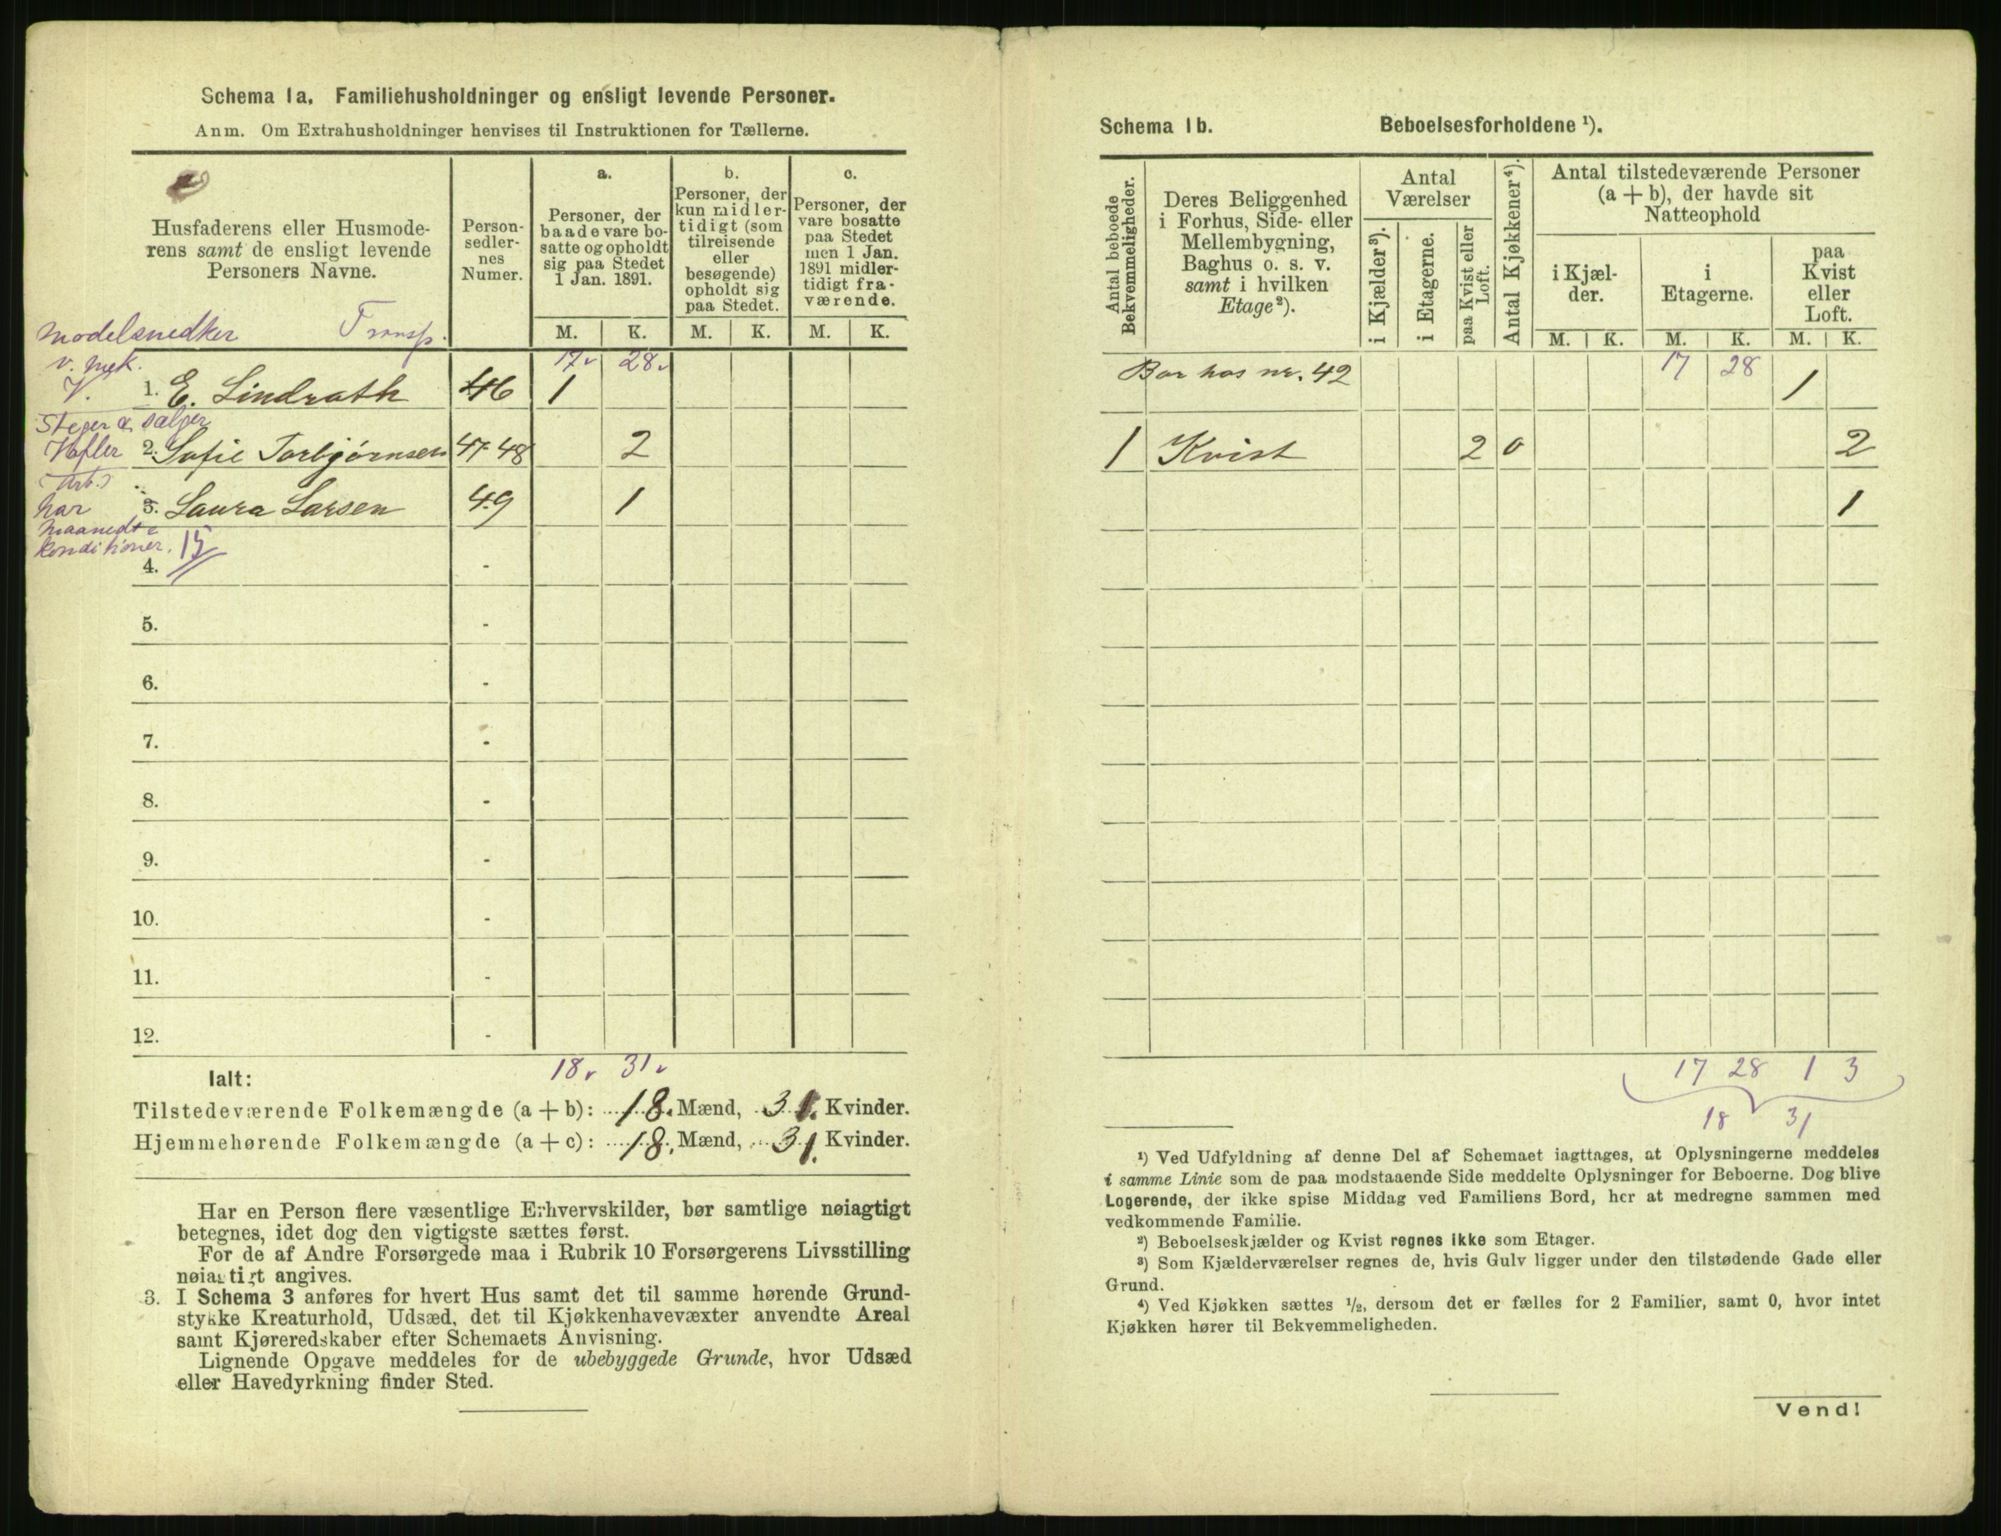 Schema 1a. Familiehusholdninger og ensligt levende Personer.
Anm. Om Extrahusholdninger henvises til Instruktionen for Tællerne.
Husfaderens eller Husmode-
rens samt de ensligt levende
Personers Navne.
Person-
sedler-
nes
Numer.
a.
Personer, der
baade vare bo-
satte og opholdt
sig paa Stedet
1 Jan. 1891.
b.
Personer, der
kun midler-
tidigt (som
tilreisende
eller
besøgende)
opholdt sig
paa Stedet.
c.
Personer, der
vare bosatte
paa Stedet
men 1 Jan.
1891 midler-
tidigt fra-
værende.
M. K. M. K. M. K.
Modelsnedker Transp.
v. mek.
V. 17 28
1. E. Lindrath 46 1
Steger & sælger
Vafler 2. Sofie Torbjørnsen 47-48 2
(Arb.)
har 3. Laura Larsen 49 1
maanedte
konditioner. 15
4. -
5. -
6. -
7. -
8. -
9. -
10. -
11. -
12. -
18 31
Ialt:
Tilstedeværende Folkemængde (a + b): 18. Mænd, 31. Kvinder.
Hjemmehørende Folkemængde (a + c): 18. Mænd, 31. Kvinder.
Har en Person flere væsentlige Erhvervskilder, bør samtlige nøiagtigt
betegnes, idet dog den vigtigste sættes først.
For de af Andre Forsørgede maa i Rubrik 10 Forsørgerens Livsstilling
nøiagtigt angives.
3. I Schema 3 anføres for hvert Hus samt det til samme hørende Grund-
stykke Kreaturhold, Udsæd, det til Kjøkkenhavevæxter anvendte Areal
samt Kjøreredskaber efter Schemaets Anvisning.
Lignende Opgave meddeles for de ubebyggede Grunde, hvor Udsæd
eller Havedyrkning finder Sted.
Schema 1b. Beboelsesforholdene ¹).
Antal beboede
Bekvemmeligheder.
Deres Beliggenhed
i Forhus, Side- eller
Mellembygning,
Baghus o. s. v.
samt i hvilken
Etage²).
Antal
Værelser
i Kjælder³).
i Etagerne.
paa Kvist eller
Loft.
Antal Kjøkkener⁴).
Antal tilstedeværende Personer
(a + b), der havde sit
Natteophold
i Kjæl-
der.
i
Etagerne.
paa
Kvist
eller
Loft.
M. K. M. K. M. K.
17 28
Bor hos nr. 42 1
1 Kvist 2 0 2
1
17 28 1 3
18 31
¹) Ved Udfyldning af denne Del af Schemaet iagttages, at Oplysningerne meddeles
i samme Linie som de paa modstaaende Side meddelte Oplysninger for Beboerne. Dog blive
Logerende, der ikke spise Middag ved Familiens Bord, her at medregne sammen med
vedkommende Familie.
²) Beboelseskjælder og Kvist regnes ikke som Etager.
³) Som Kjælderværelser regnes de, hvis Gulv ligger under den tilstødende Gade eller
Grund.
⁴) Ved Kjøkken sættes ½, dersom det er fælles for 2 Familier, samt 0, hvor intet
Kjøkken hører til Bekvemmeligheden.
Vend!